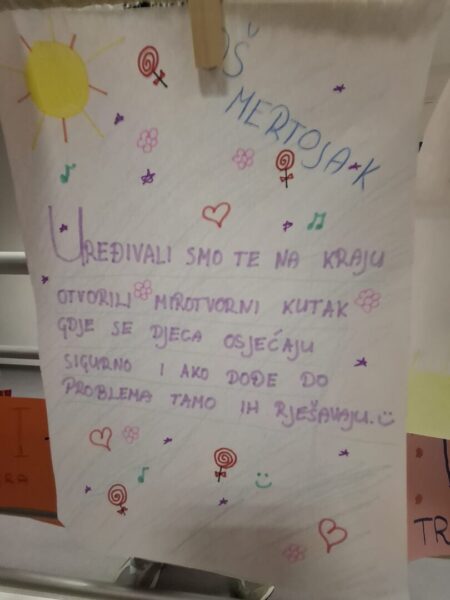 OŠ
MERTOJAK
UREĐIVALI SMO TE NA KRAJU
OTVORILI MIROTVORNI KUTAK
GDJE SE DJECA OSJEĆAJU
SIGURNO I AKO DOĐE DO
PROBLEMA TAMO IH RJEŠAVAJU.
TR